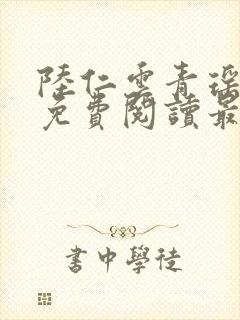 陸仁雲青瑤
免費閱讀最
書中學徒